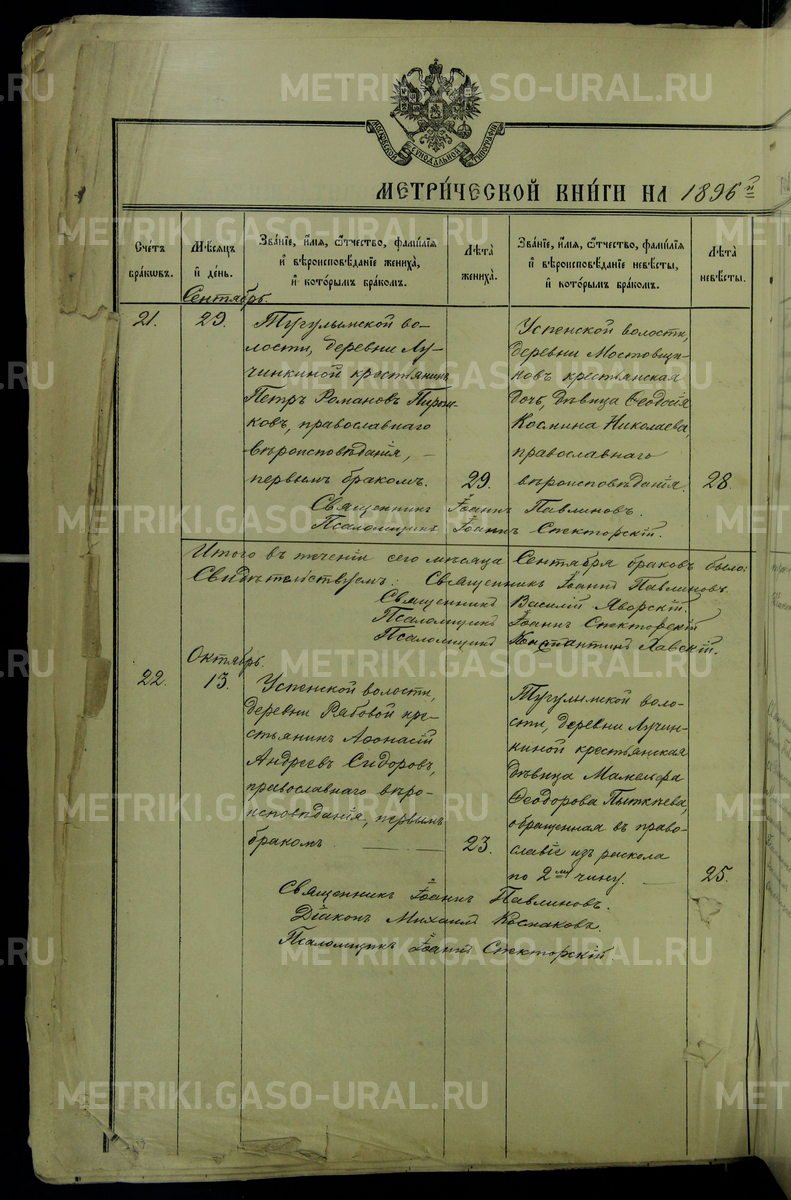 МОСКОВСКОЙ СѴНОДАЛЬНОЙ ТИПОГРАФІИ
МЕТРИ́ЧЕСКОЙ КНИ́ГИ НА 1896 й
Сче́тъ бра́кѡвъ.
Мѣ́сяцъ и҆ де́нь.
Зва́нїе, и҆́мя, ѻ҆́тчество, фами́лїя и҆ вѣроисповѣ́данїе жениха̀, и҆ кото́рымъ бра́комъ.
Лѣ́та жениха̀.
Зва́нїе, и҆́мя, ѻ҆́тчество, фами́лїя и҆ вѣроисповѣ́данїе невѣ́сты, и҆ кото́рымъ бра́комъ.
Лѣ́та невѣ́сты.
Сентябрь.
21.
29.
Тугулымской во-
лости, деревни Лу-
чинкиной крестьянинъ
Петръ Романовъ
православнаго
вѣроисповѣданія, —
первымъ бракомъ.
29.
Успенской волости,
деревни Мостовщи-
ковъ крестьянская
дочь, дѣвица Ѳеодосія
Космина Николаева,
православнаго
вѣроисповѣданія.
28.
Священникъ Іоаннъ Павлиновъ.
Псаломщикъ Іоаннъ Спекторскій.
Итого въ теченіи сего мѣсяца Сентября браковъ было:
Свидѣтельствуемъ: Священникъ Іоаннъ Павлиновъ
Священникъ Василій Яворскій.
Псаломщикъ Іоаннъ Спекторскій
Псаломщикъ Константинъ Лавскій.
Октябрь.
22.
13.
Успенской волости,
деревни Рябовой кре-
стьянинъ Аѳонасій
Андреевъ Сидоровъ,
православнаго вѣро-
исповѣданія, первымъ
бракомъ
23.
Тугулымской воло-
сти, деревни Лучин-
киной крестьянская
дѣвица Мамельфа
Ѳеодорова
обращенная въ право-
славіе изъ раскола
по 2му чину. —
25.
Священникъ Іоаннъ Павлиновъ.
Діаконъ Михаилъ
Псаломщикъ Іоаннъ Спекторскій
METRIKI.GASO-URAL.RU